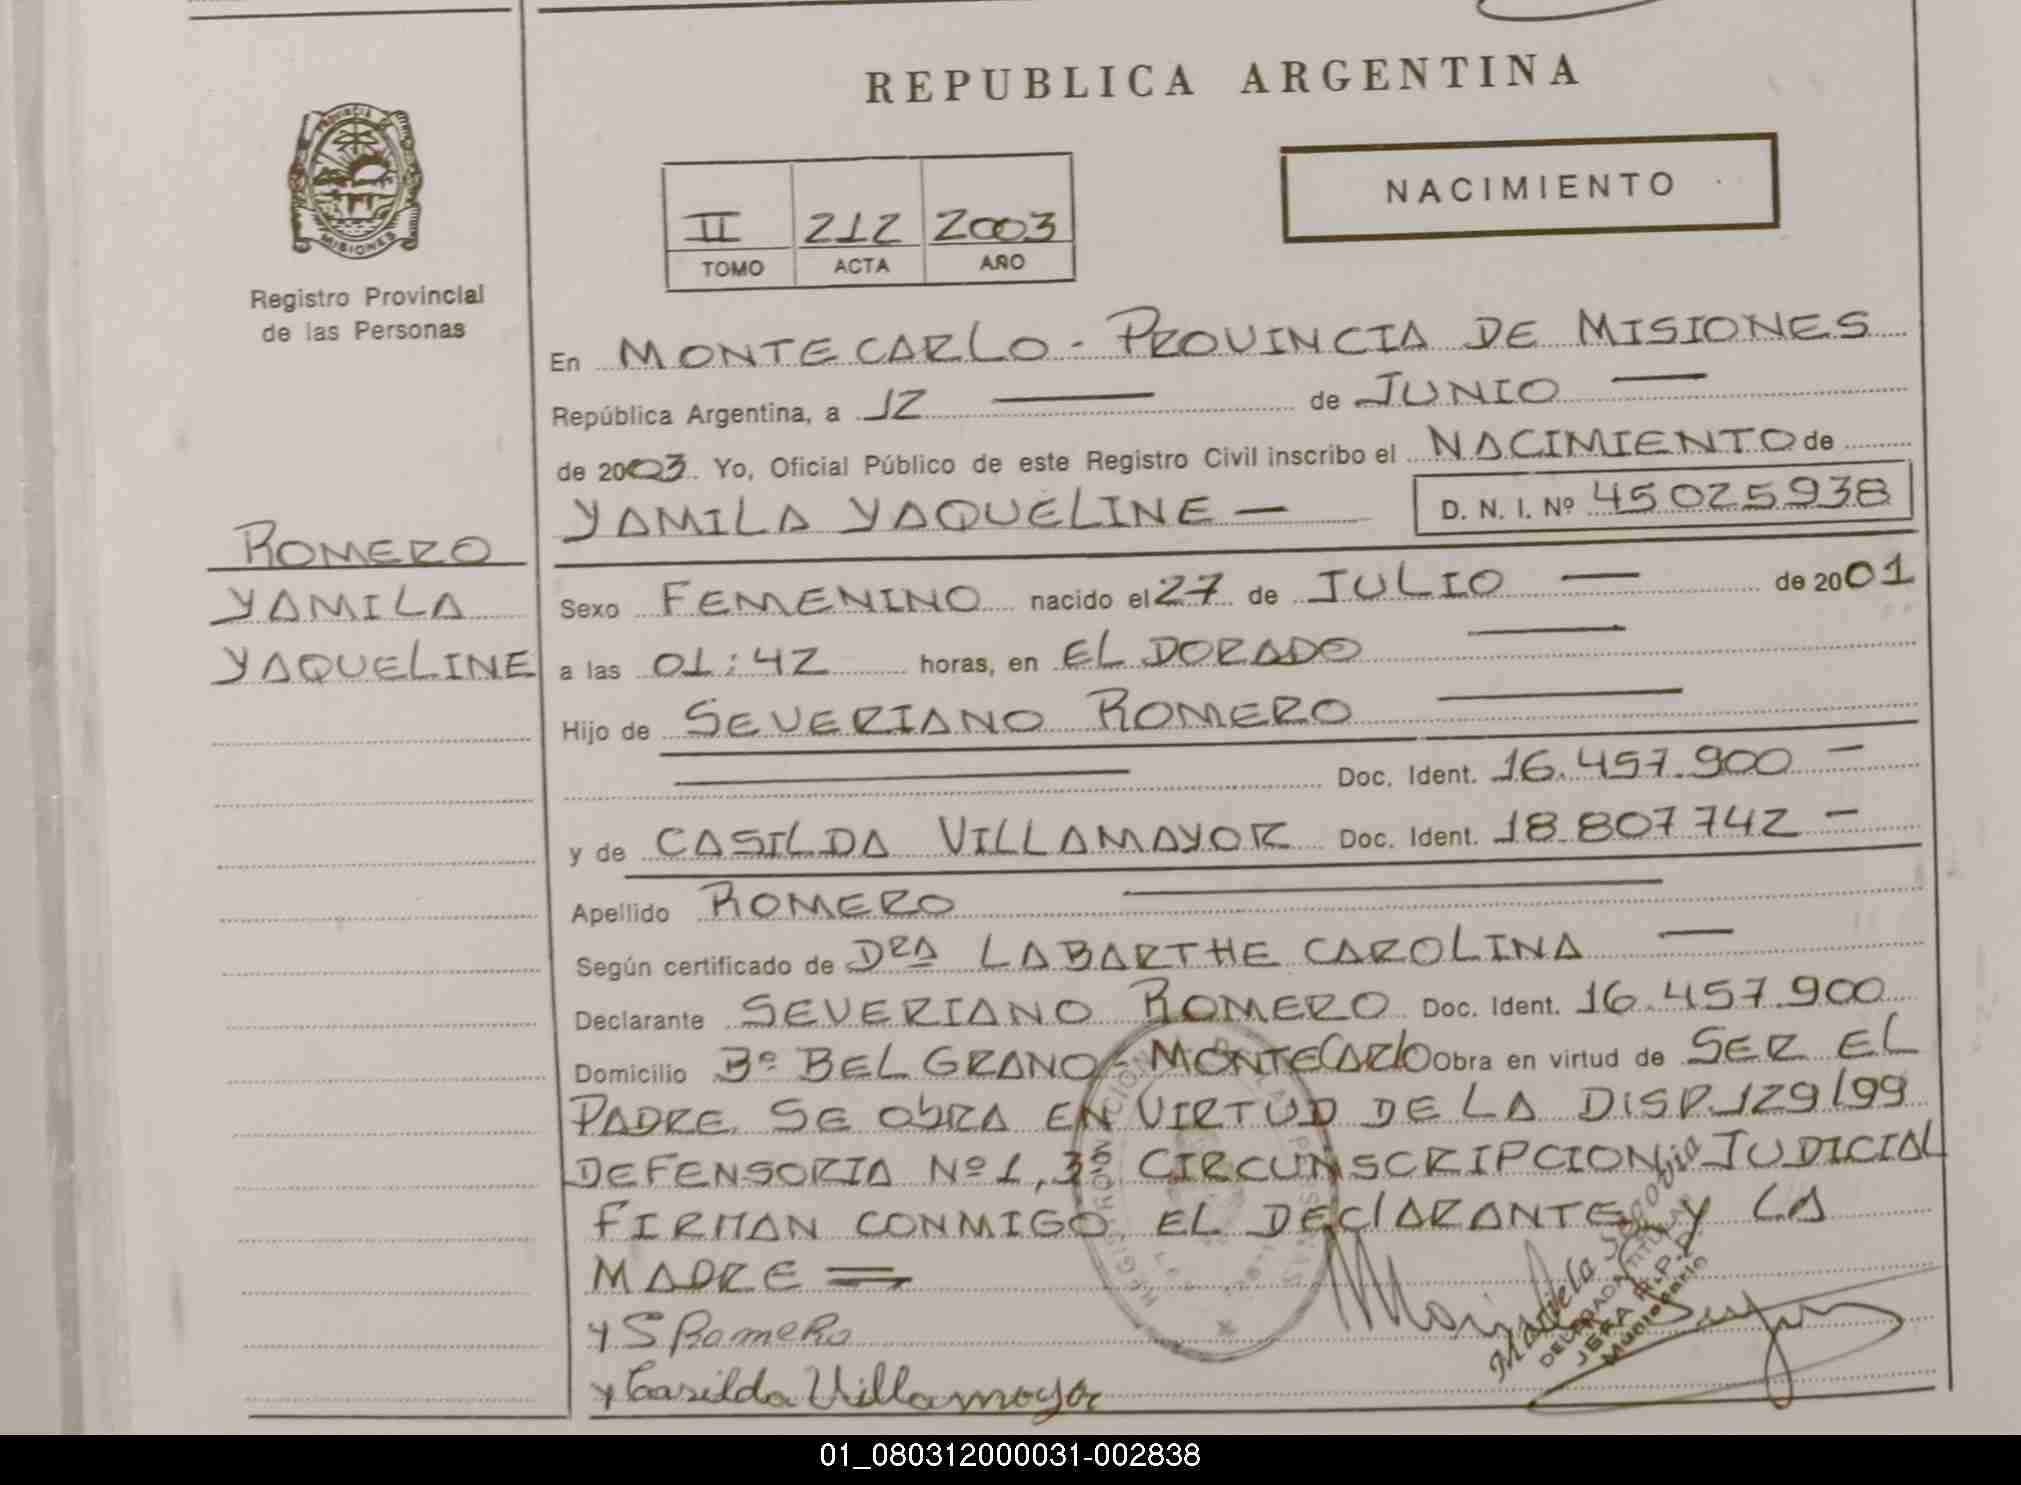 REPUBLICA ARGENTINA
PROVINCIA DE
MISIONES
Registro Provincial
de las Personas
NACIMIENTO
II 212 2003
TOMO ACTA AÑO
En MONTECARLO - PROVINCIA DE MISIONES
República Argentina, a 12 de JUNIO
de 2003 Yo, Oficial Público de este Registro Civil inscribo el NACIMIENTO de
YAMILA YAQUELINE — D. N. I. Nº 45025938
ROMERO
YAMILA
YAQUELINE
Sexo FEMENINO nacido el 27 de JULIO — de 2001
a las 01:42 horas, en EL DORADO
Hijo de SEVERIANO ROMERO
Doc. Ident. 16.457.900 —
y de CASILDA VILLAMAYOR Doc. Ident. 18.807742 —
Apellido ROMERO
Según certificado de DRA LABARTHE CAROLINA —
Declarante SEVERIANO ROMERO Doc. Ident. 16.457.900
Domicilio Bº BELGRANO - MONTECARLO Obra en virtud de SER EL
PADRE. SE OBRA EN VIRTUD DE LA DISP. 129/99
DEFENSORIA Nº 1, 3º CIRCUNSCRIPCION JUDICIAL
FIRMAN CONMIGO EL DECLARANTE Y LA
MADRE =
y S Romero
y Casilda Villamayor
DELEGADA TITULAR
01_080312000031-002838